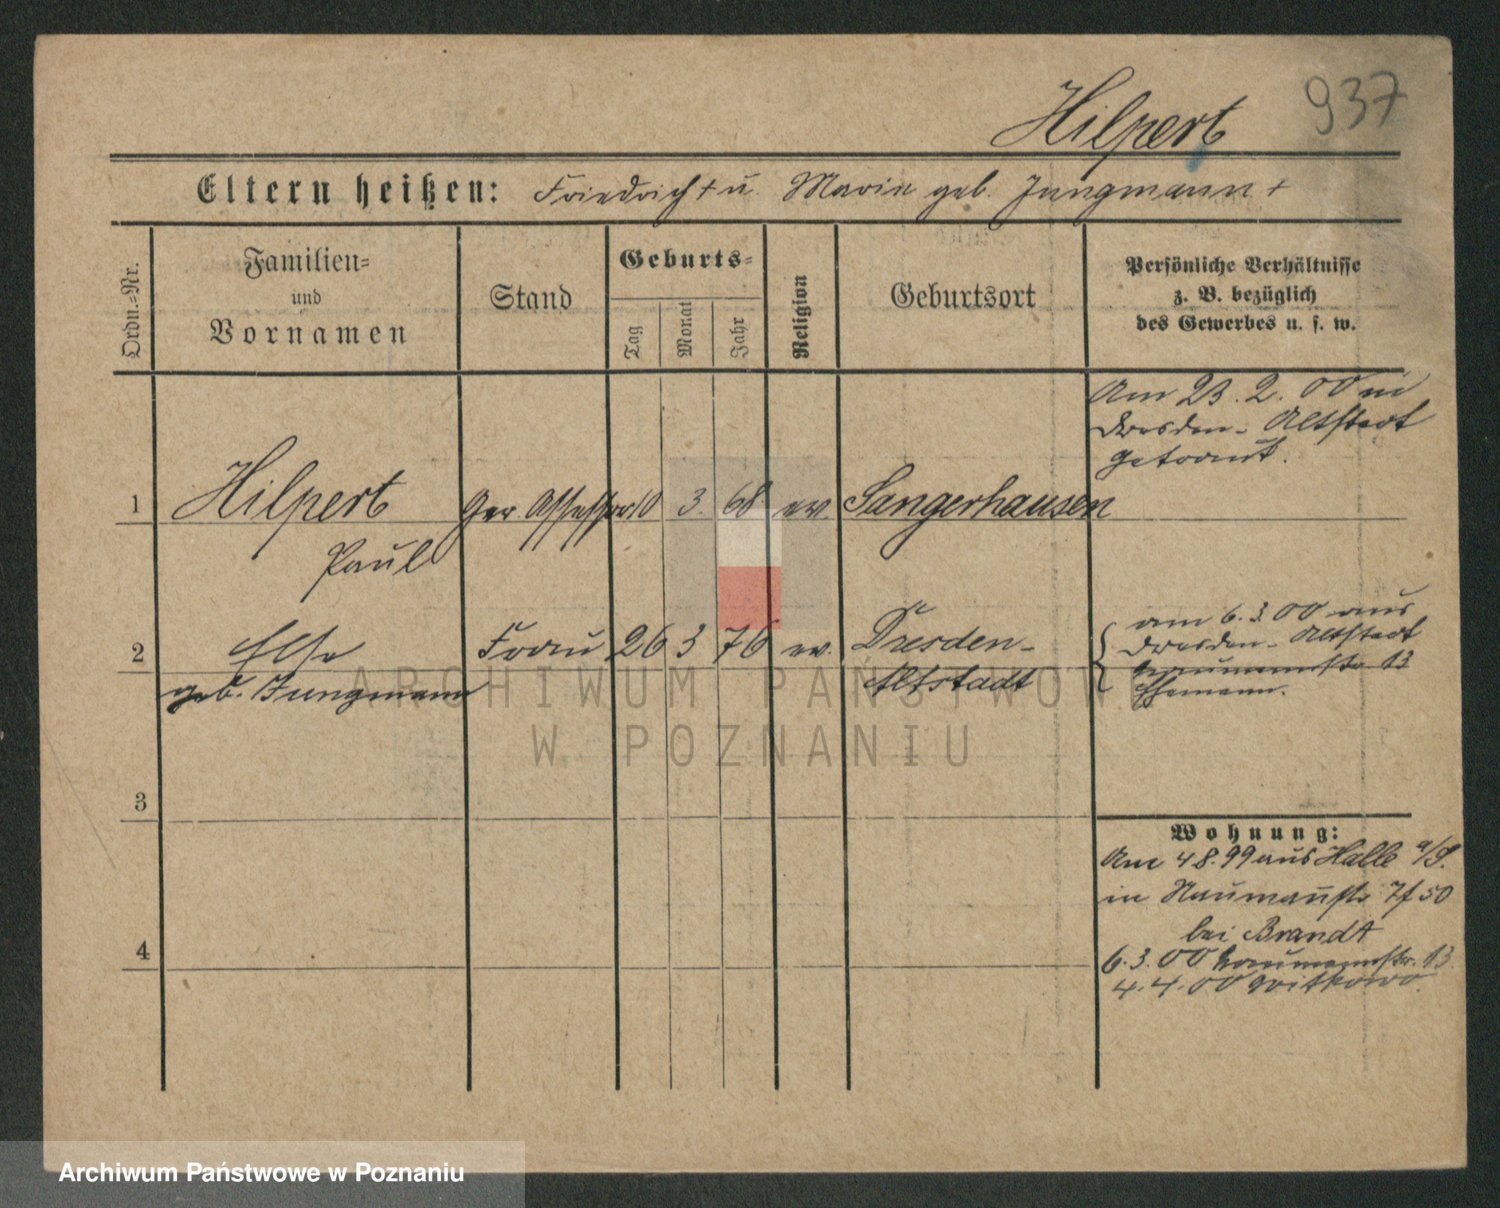 937
Hilpert
Eltern heißen: Friedrich + u. Marie geb. Jungmann +
Ordn.-Nr.
Familien-
und
Vornamen
Stand
Geburts-
Tag
Monat
Jahr
Religion
Geburtsort
Persönliche Verhältnisse
z. B. bezüglich
des Gewerbes u. s. w.
Am 23. 2. 00 in
Dresden- Altstadt
getraut.
1 Hilpert Ger. Assessor 10 3. 68 ev. Sangerhausen
Paul
2 Else Frau 26 3 76 ev. Dresden-
geb. Jungmann Altstadt
am 6. 3. 00 aus
Dresden- Altstadt
Naumannstr 13
Ehemann.
3
4
Wohnung:
Am 4 8. 99 aus Halle a/S.
in Naumannstr 7 50
bei Brandt
6. 3. 00 Naumannstr. 13
4. 4. 00 Witkowo.
ARCHIWUM PAŃSTWOWE
W POZNANIU
Archiwum Państwowe w Poznaniu